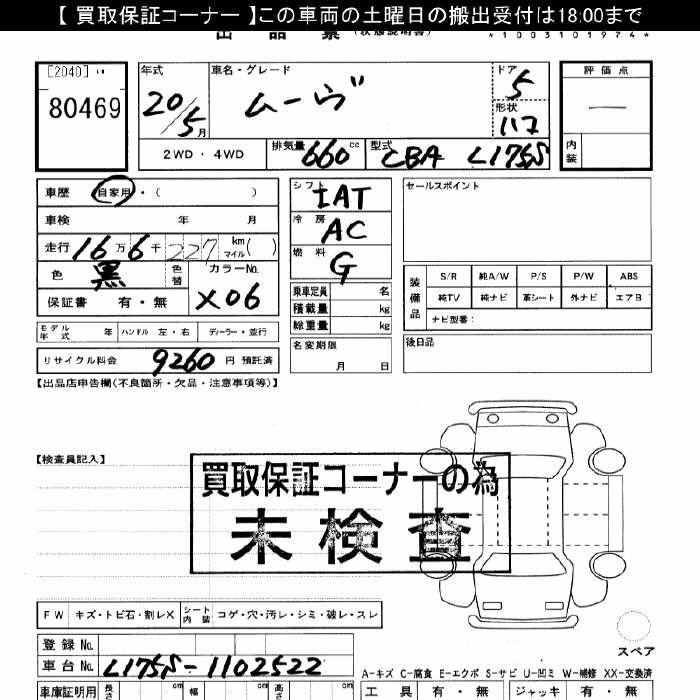 【 買取保証コーナー 】この車両の土曜日の搬出受付は18:00まで
出 品 票 (状態説明書) *1003101974*
[2040]
80469
年式 20/5月
車名・グレード ムーヴ
ドア 5
形状 117コ
評価点 —
内装
2WD ・ 4WD
排気量 660 cc
型式 CBA L175S
車歴 自家用 ・( )
車検 年 月
走行 16万6千227 km マイル ( )
色 黒 色替
カラーNo. X06
保証書 有・無
モデル年式 年 ハンドル 左・右 ディーラー・並行
リサイクル料金 9260 円 預託済
シフト IAT
冷房 AC
燃料 G
乗車定員 名
積載量 kg
総重量 kg
名変期限
月 日
セールスポイント
装備品
S/R 純A/W P/S P/W ABS
純TV 純ナビ 革シート 外ナビ エアB
ナビ型番:
後日品
【出品店申告欄(不良箇所・欠品・注意事項等)】
【検査員記入】
買取保証コーナーの為
未検査
FW キズ・トビ石・割レX シート内装 コゲ・穴・汚レ・シミ・破レ・スレ
登録 No.
車台 No. L175S-1102522
スペア
A-キズ C-腐食 E-エクボ S-サビ U-凹ミ W-補修 XX-交換済
車庫証明用 長さ cm 幅 cm 高さ cm
工具 有・無 ジャッキ 有・無